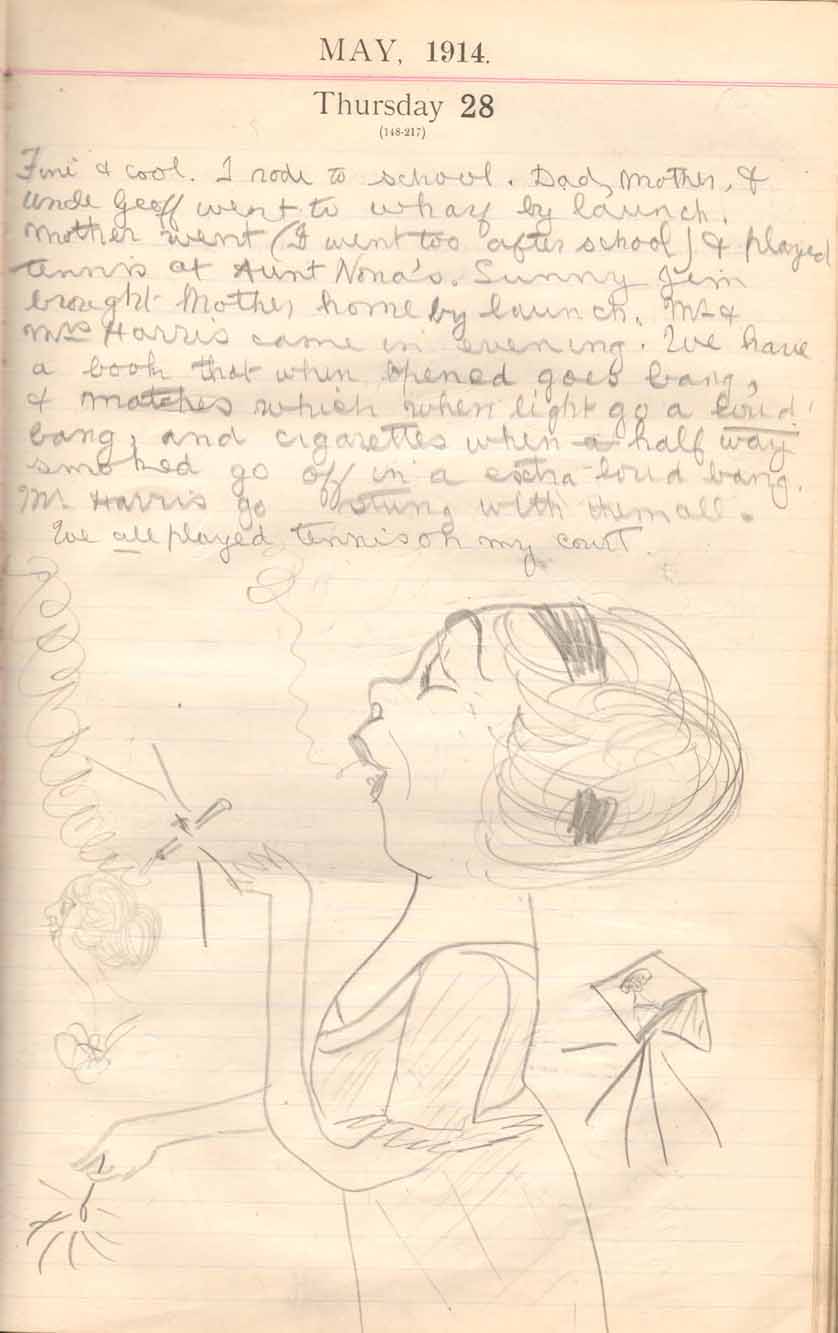 MAY, 1914.
Thursday 28
(148-217)
Fine & cool. I rode to school. Dad, Mother, &
Uncle Geoff went to wharf by launch.
Mother went (I went too after school) & played
tennis at Aunt Nona's. Sunny Jim
brought Mother home by launch. Mr &
Mrs Harris came in evening. We have
a book that when opened goes bang,
& matches which when light go a loud
bang, and cigarettes when a half way
smoked go off in a extra loud bang.
Mr Harris go stung with them all.
We all played tennis on my court.